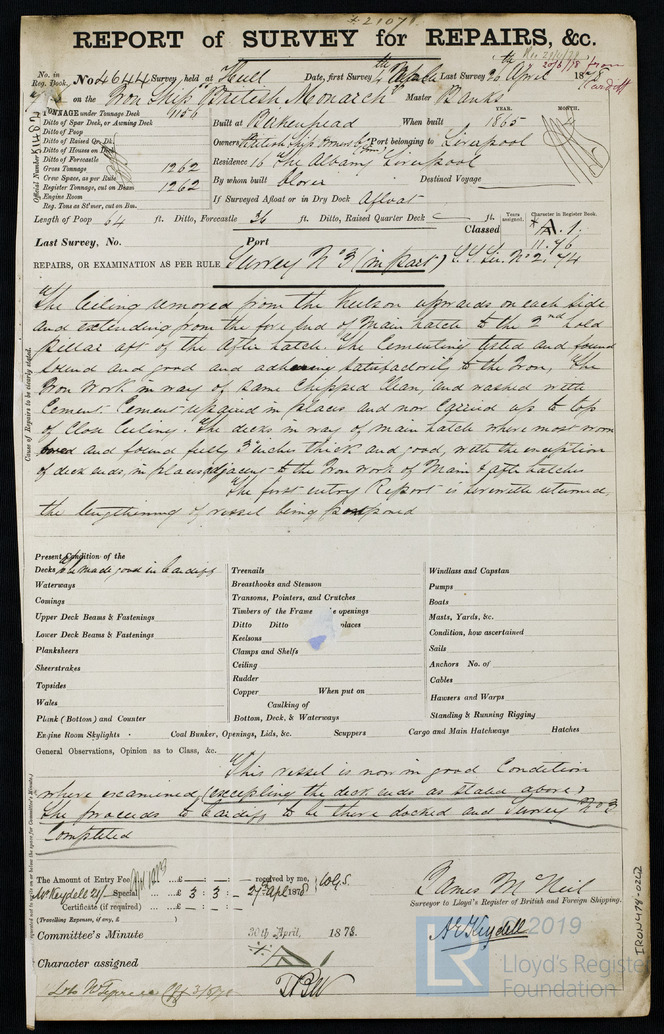 * 21071
REPORT of SURVEY for REPAIRS, &c.
No. in Reg. Book. No 4644 Survey, held at Hull Date, first Survey Last Survey 20th April 1878
on the Iron Ship "British Monarch" Master Banks
TONNAGE under Tonnage Deck 1156
Ditto of Spar Deck, or Awning Deck
Ditto of Poop
Ditto of Raised Qr. Dk.
Ditto of Houses on Deck
Ditto of Forecastle
Gross Tonnage 1262
Crew Space, as per Rule
Register Tonnage, cut on Beam 1262
Engine Room
Reg. Tons as St'mer, cut on Bm.
Official Number
Built at Birkenhead When built YEAR. 1865 MONTH.
Owners British Ship Owners Co Port belonging to Liverpool
Residence 16 The Albany Liverpool
By whom built Destined Voyage
If Surveyed Afloat or in Dry Dock Afloat
Length of Poop 64 ft. Ditto, Forecastle 36 ft. Ditto, Raised Quarter Deck ft. Years assigned. Character in Register Book.
Classed * A. 1.
11.76
Last Survey, No. Port
REPAIRS, OR EXAMINATION AS PER RULE Survey No 3 (in part) S.S. Liv. No 2. 74
Cause of Repairs to be clearly stated.
The Ceiling removed from the Keelson upwards on each side
and extending from the fore end of Main hatch to the 2nd hold
pillar aft of the After hatch. The Cementing tested and found
sound and good and adhering satisfactorily to the Iron, The
Iron Work in way of same Chipped Clean, and washed with
Cement. Cement repaired in places and now Carried up to top
of Close Ceiling. The decks in way of main hatch where most worn
bored and found fully 3 inches thick and good, with the exception
of deck ends, in places, adjacent to the Iron work of Main & After hatches
The first entry Report is herewith returned,
the lengthening of vessel being postponed
Present Condition of the
Decks To be made good in Cardiff
Waterways
Comings
Upper Deck Beams & Fastenings
Lower Deck Beams & Fastenings
Planksheers
Sheerstrakes
Topsides
Wales
Plank (Bottom) and Counter
Treenails
Breasthooks and Stemson
Transoms, Pointers, and Crutches
Timbers of the Frame openings
Ditto Ditto places
Keelsons
Clamps and Shelfs
Ceiling
Rudder
Copper When put on
Caulking of
Bottom, Deck, & Waterways
Windlass and Capstan
Pumps
Boats
Masts, Yards, &c.
Condition, how ascertained
Sails
Anchors No. of
Cables
Hawsers and Warps
Standing & Running Rigging
Engine Room Skylights Coal Bunker, Openings, Lids, &c. Scuppers Cargo and Main Hatchways Hatches
General Observations, Opinion as to Class, &c.
This vessel is now in good Condition
where examined (excepting the deck ends as stated above)
She proceeds to Cardiff to be there docked and Survey No 3
Completed
The Amount of Entry Fee ...£ : : received by me,
McKeydell 21/- Special ...£ 3 : 3 : - 27th Apl 1878
Certificate (if required) ...£ : :
(Travelling Expenses, if any, £ )
James McNeil
Surveyor to Lloyd's Register of British and Foreign Shipping.
Committee's Minute 30th April, 1878.
Character assigned
IRON478-0262
© 2019
LR
Lloyd's Register
Foundation